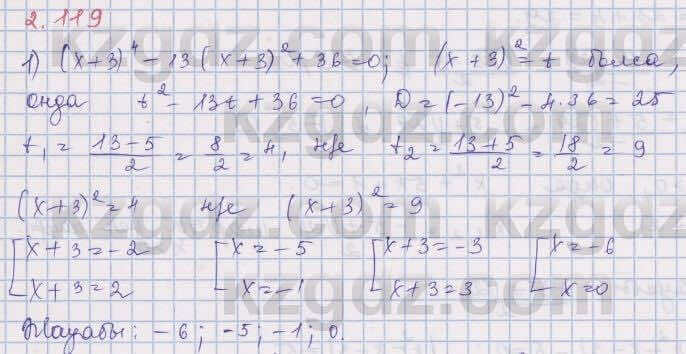 2.119
1) (x+3)⁴ - 13(x+3)² + 36 = 0; (x+3)² = t болса,
онда t² - 13t + 36 = 0, D = (-13)² - 4·36 = 25
t₁ = (13-5)/2 = 8/2 = 4, не t₂ = (13+5)/2 = 18/2 = 9
(x+3)² = 4 не (x+3)² = 9
[x+3=-2 [x=-5 [x+3=-3 [x=-6
[x+3=2 [x=-1 [x+3=3 [x=0
Жауабы: -6; -5; -1; 0.
kzgdz.com